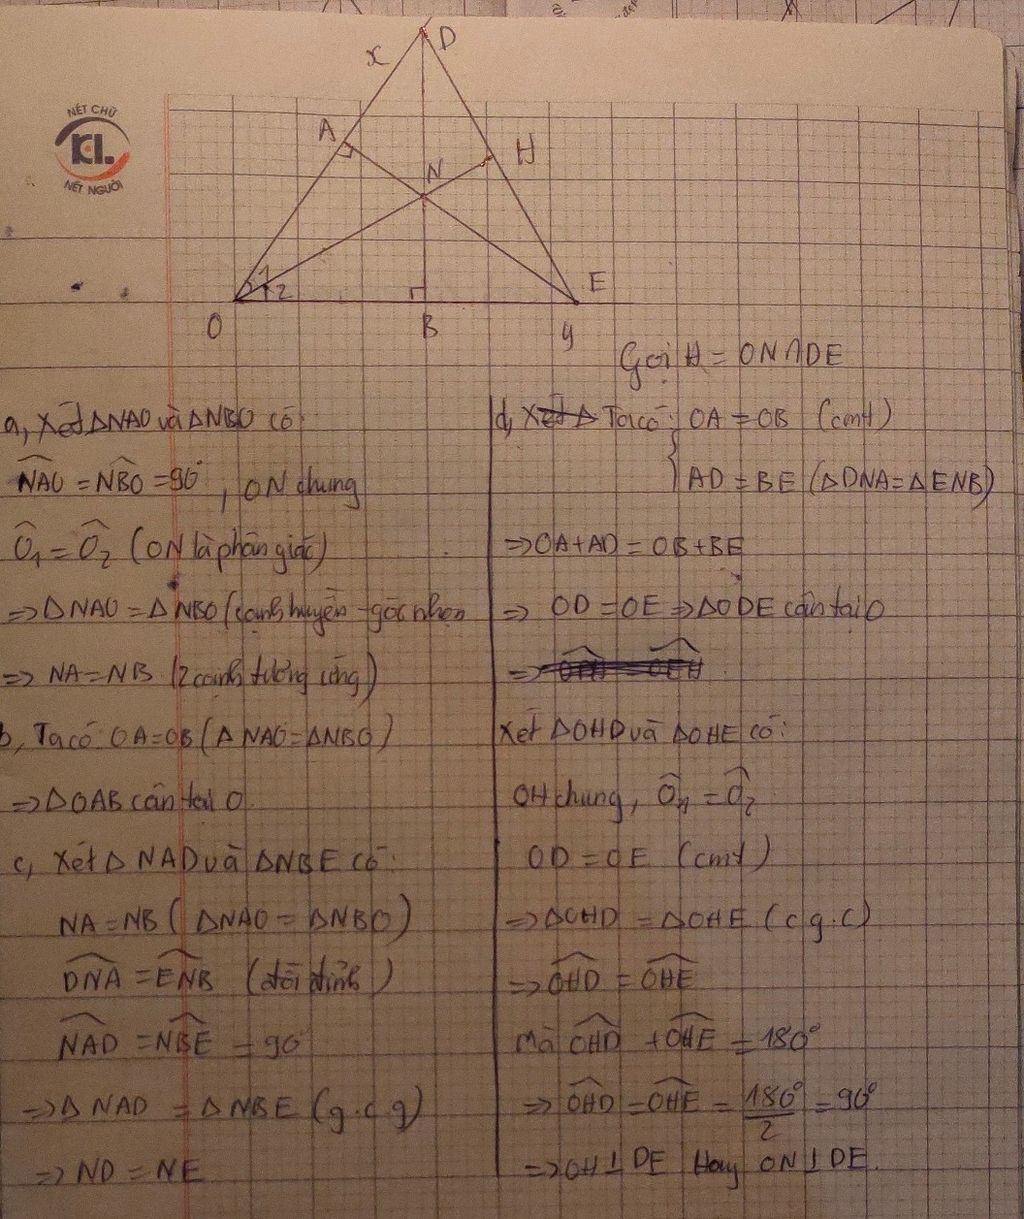 NÉT CHỮ
KL
NÉT NGƯỜI
x
D
A
H
N
1
2
E
O
B
y
Gọi H = ON ∩ DE
a, Xét ΔNAO và ΔNBO có:
NAO = NBO = 90°, ON chung
O1 = O2 (ON là phân giác)
=> ΔNAO = ΔNBO (cạnh huyền - góc nhọn
=> NA = NB (2 cạnh tương ứng)
b, Ta có OA = OB (ΔNAO = ΔNBO)
=> ΔOAB cân tại O
c, Xét ΔNAD và ΔNBE có:
NA = NB (ΔNAO = ΔNBO)
DNA = ENB (đối đỉnh)
NAD = NBE = 90°
=> ΔNAD = ΔNBE (g.c.g)
=> ND = NE
d, Ta có: OA = OB (cmt)
AD = BE (ΔDNA = ΔENB)
=> OA + AD = OB + BE
=> OD = OE => ΔODE cân tại O
=>
Xét ΔOHD và ΔOHE có:
OH chung, O1 = O2
OD = OE (cmt)
=> ΔOHD = ΔOHE (c.g.c)
=> OHD = OHE
Mà OHD + OHE = 180°
=> OHD = OHE = 180°/2 = 90°
=> OH ⊥ DE Hay ON ⊥ DE.